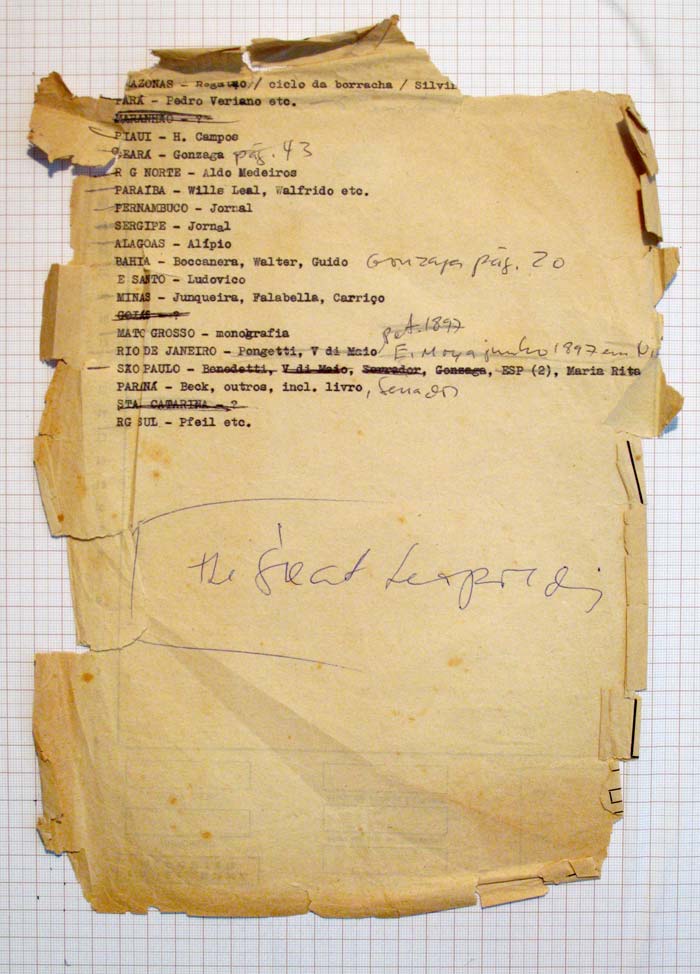 AZONAS - Regatão // ciclo da borracha / Silvi
PARÁ - Pedro Veriano etc.
MARANHÃO - ?
PIAUI - H. Campos
CEARÁ - Gonzaga pág. 43
R G NORTE - Aldo Medeiros
PARAÍBA - Wills Leal, Walfrido etc.
PERNAMBUCO - Jornal
SERGIPE - Jornal
ALAGOAS - Alípio
BAHIA - Boccanera, Walter, Guido Gonzaga pág. 20
E SANTO - Ludovico
MINAS - Junqueira, Falabella, Carriço
GOIÁS - ?
MATO GROSSO - monografia
1897
RIO DE JANEIRO - Pongetti, V di Maio E. Moya junho 1897 em
SÃO PAULO - Benedetti, V di Maio, Serrador, Gonzaga, ESP (2), Maria Rita
PARANÁ - Beck, outros, incl. livro, Serrador
STA. CATARINA - ?
RG SUL - Pfeil etc.
the Great